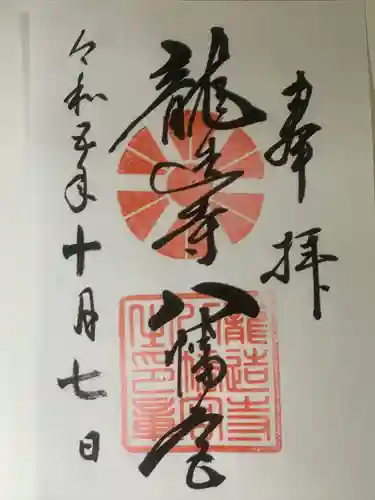 奉拝
龍造寺八幡宮
令和五年十月七日
龍造寺
八幡宮
之印章